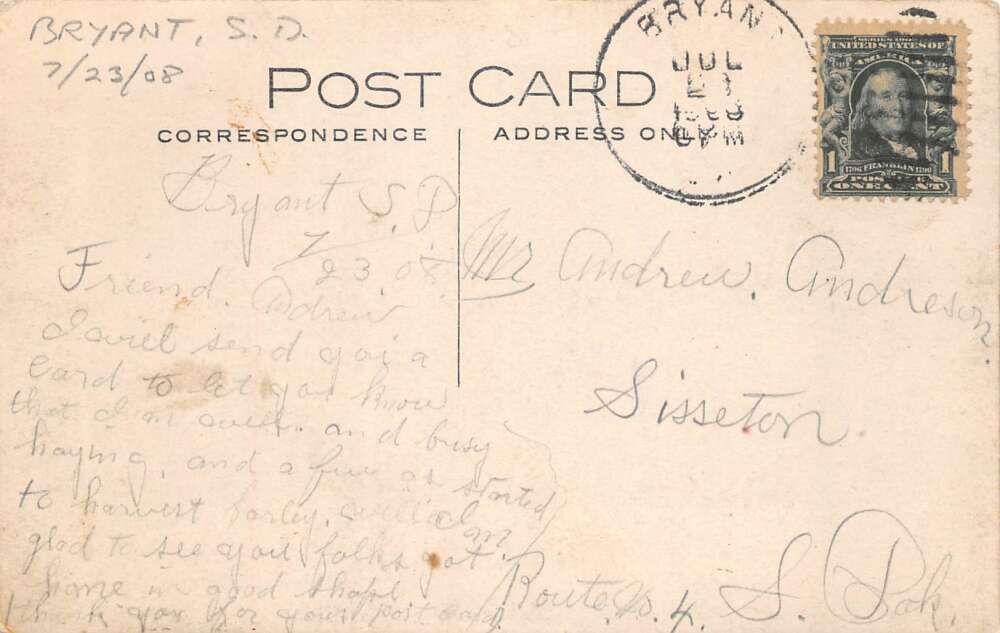 BRYANT, S. D.
7/23/08
POST CARD
CORRESPONDENCE
ADDRESS ONLY
BRYANT
JUL
23
1908
PM
SERIES 1902
UNITED STATES OF
AMERICA
1 1706 FRANKLIN 1790 1
POSTAGE
ONE CENT
Bryant S. D
7/23 08.
Friend. Adrew
I will send you a
Card to let you know
that I'm well. and busy
haying, and a few as started
to harvest barley. well I'm
glad to see you folks got
home in good shape
thank you for your post card
Mr Andrew. Andreson.
Sisseton.
Route No. 4. S. Dak.